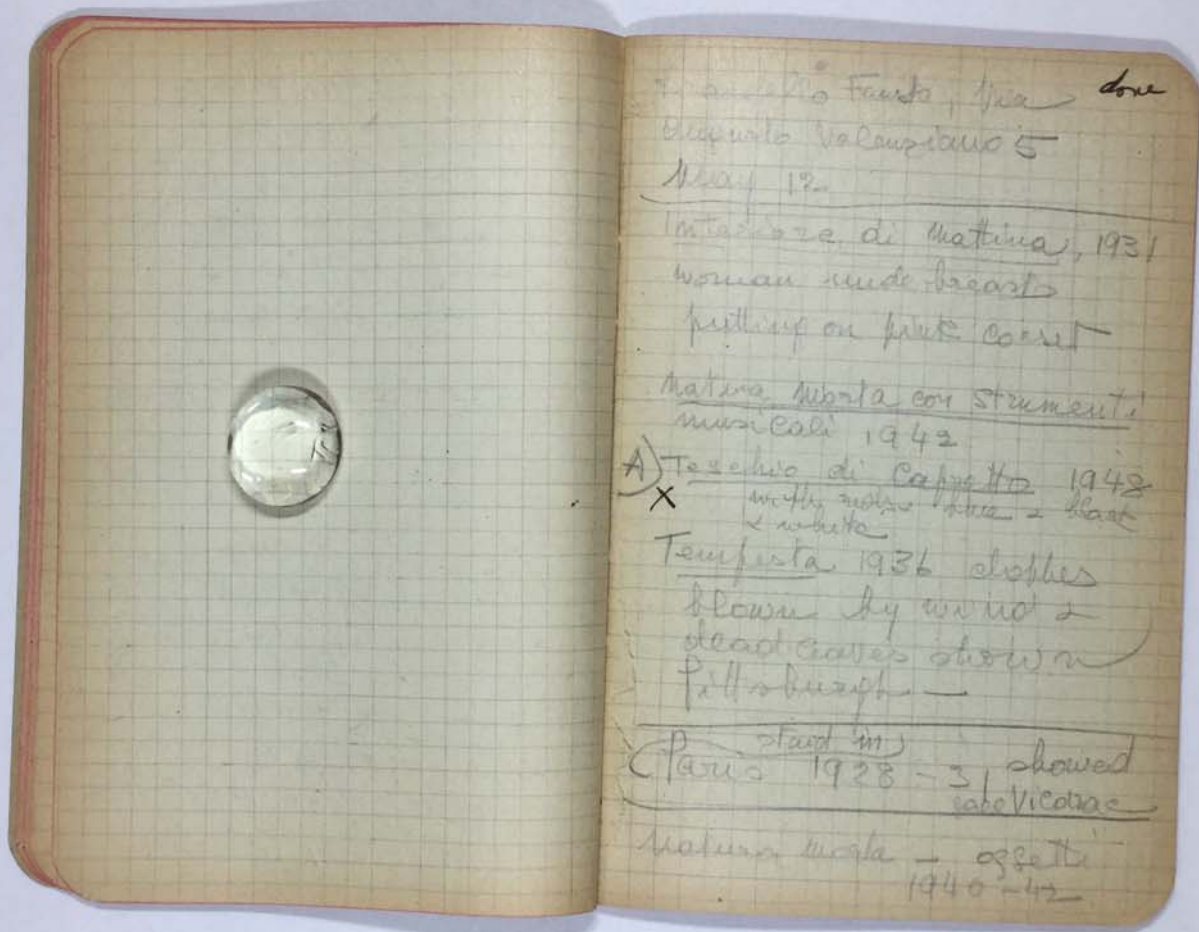 done
Fausto, Via
Augusto Valenziano 5
May 12
Interiore di Mattina, 1931
woman nude breasts
putting on pink corset
Natura morta con strumenti
musicali 1942
A) Teschio di Capretto 1948
X
with blue & black
& white
Tempesta 1936 clothes
blown by wind &
dead leaves shown
Pittsburgh —
stayed in
(Paris 1928-31 showed
Vildrac
Natura morta — oggetti
1940-42